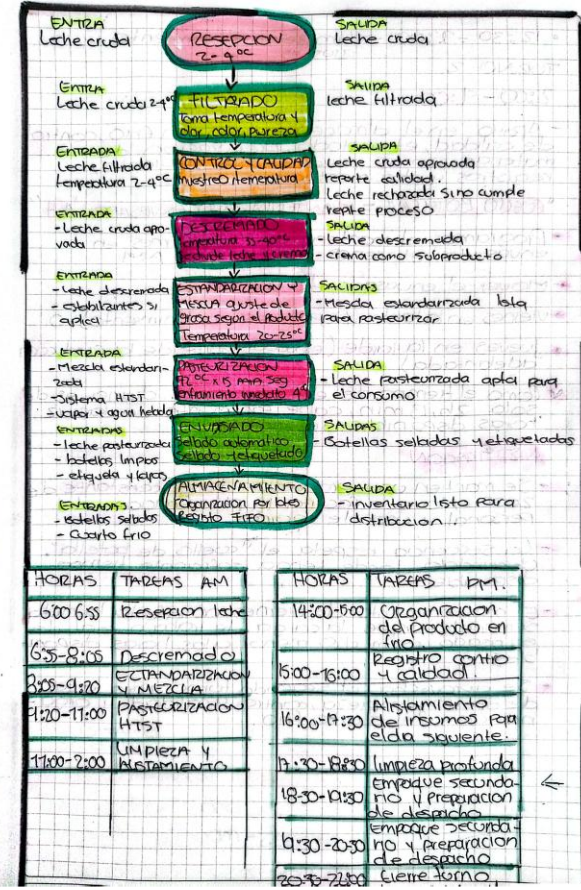 ENTRA
Leche cruda
RESEPCION
2-4°C
SALIDA
Leche cruda
ENTRA
Leche cruda 2-4°C
FILTRADO
Toma temperatura y
olor, color, pureza
SALIDA
leche filtrada
ENTRADA
Leche Filtrada
temperatura 2-4°C
CONTROL Y CALIDAD
muestreo
SALIDA
Leche cruda aprovada
reporte calidad.
Leche rechazada Sino cumple
repite proceso
ENTRADA
- Leche cruda apro-
vada
DESCREMADO
leche y crema
SALIDA
- leche descremada
- crema como subproducto
ENTRADA
- Leche descremada
- estabilizantes si
aplica
ESTANDARIZACION Y
MESCLA ajuste de
grasa segun el producto
Temperatura 20-25°C
SALIDAS
- Mescla estandarizada lista
para pasteurizar
ENTRADA
- Mezcla estandari-
zada
- Sistema HTST
- vapor y agua helada
PASTEURIZACION
72°C x 15 seg
enfriamiento inmediato 4°
SALIDA
- Leche pasteurizada apta para
el consumo
ENTRADAS
- leche pasteurizada
- botellas limpias
- etiqueta y tapas
ENVASADO
Sellado automatico
Sellado y etiquetado
SALIDAS
- Botellas selladas y etiquetadas
ENTRADAS.
- Botellas selladas
- Cuarto frio
ALMACENAMIENTO
organizacion por lotes
Registro FIFO
SALIDA
- inventario listo para
distribucion.
HORAS TAREAS AM
6:00 6:55 Resepcion leche
6:55-8:05 Descremado
8:05-9:20 EZTANDARIZACION
Y MEZCLA
9:20-11:00 PASTEURIZACION
HTST
11:00-2:00 LIMPIEZA Y
ALISTAMIENTO
HORAS TAREAS PM.
14:00-15:00 Organizacion
del producto en
frio.
15:00-16:00 Registro contro
y calidad.
16:00-17:30 Alistamiento
de insumos para
el dia siguiente.
17:30-18:30 limpieza profunda
18:30-19:30 Empaque secunda-
rio y preparacion
de despacho
19:30-20:30 Empaque secunda-
rio y preparacion
de despacho
20:30-22:00 Cierre turno.